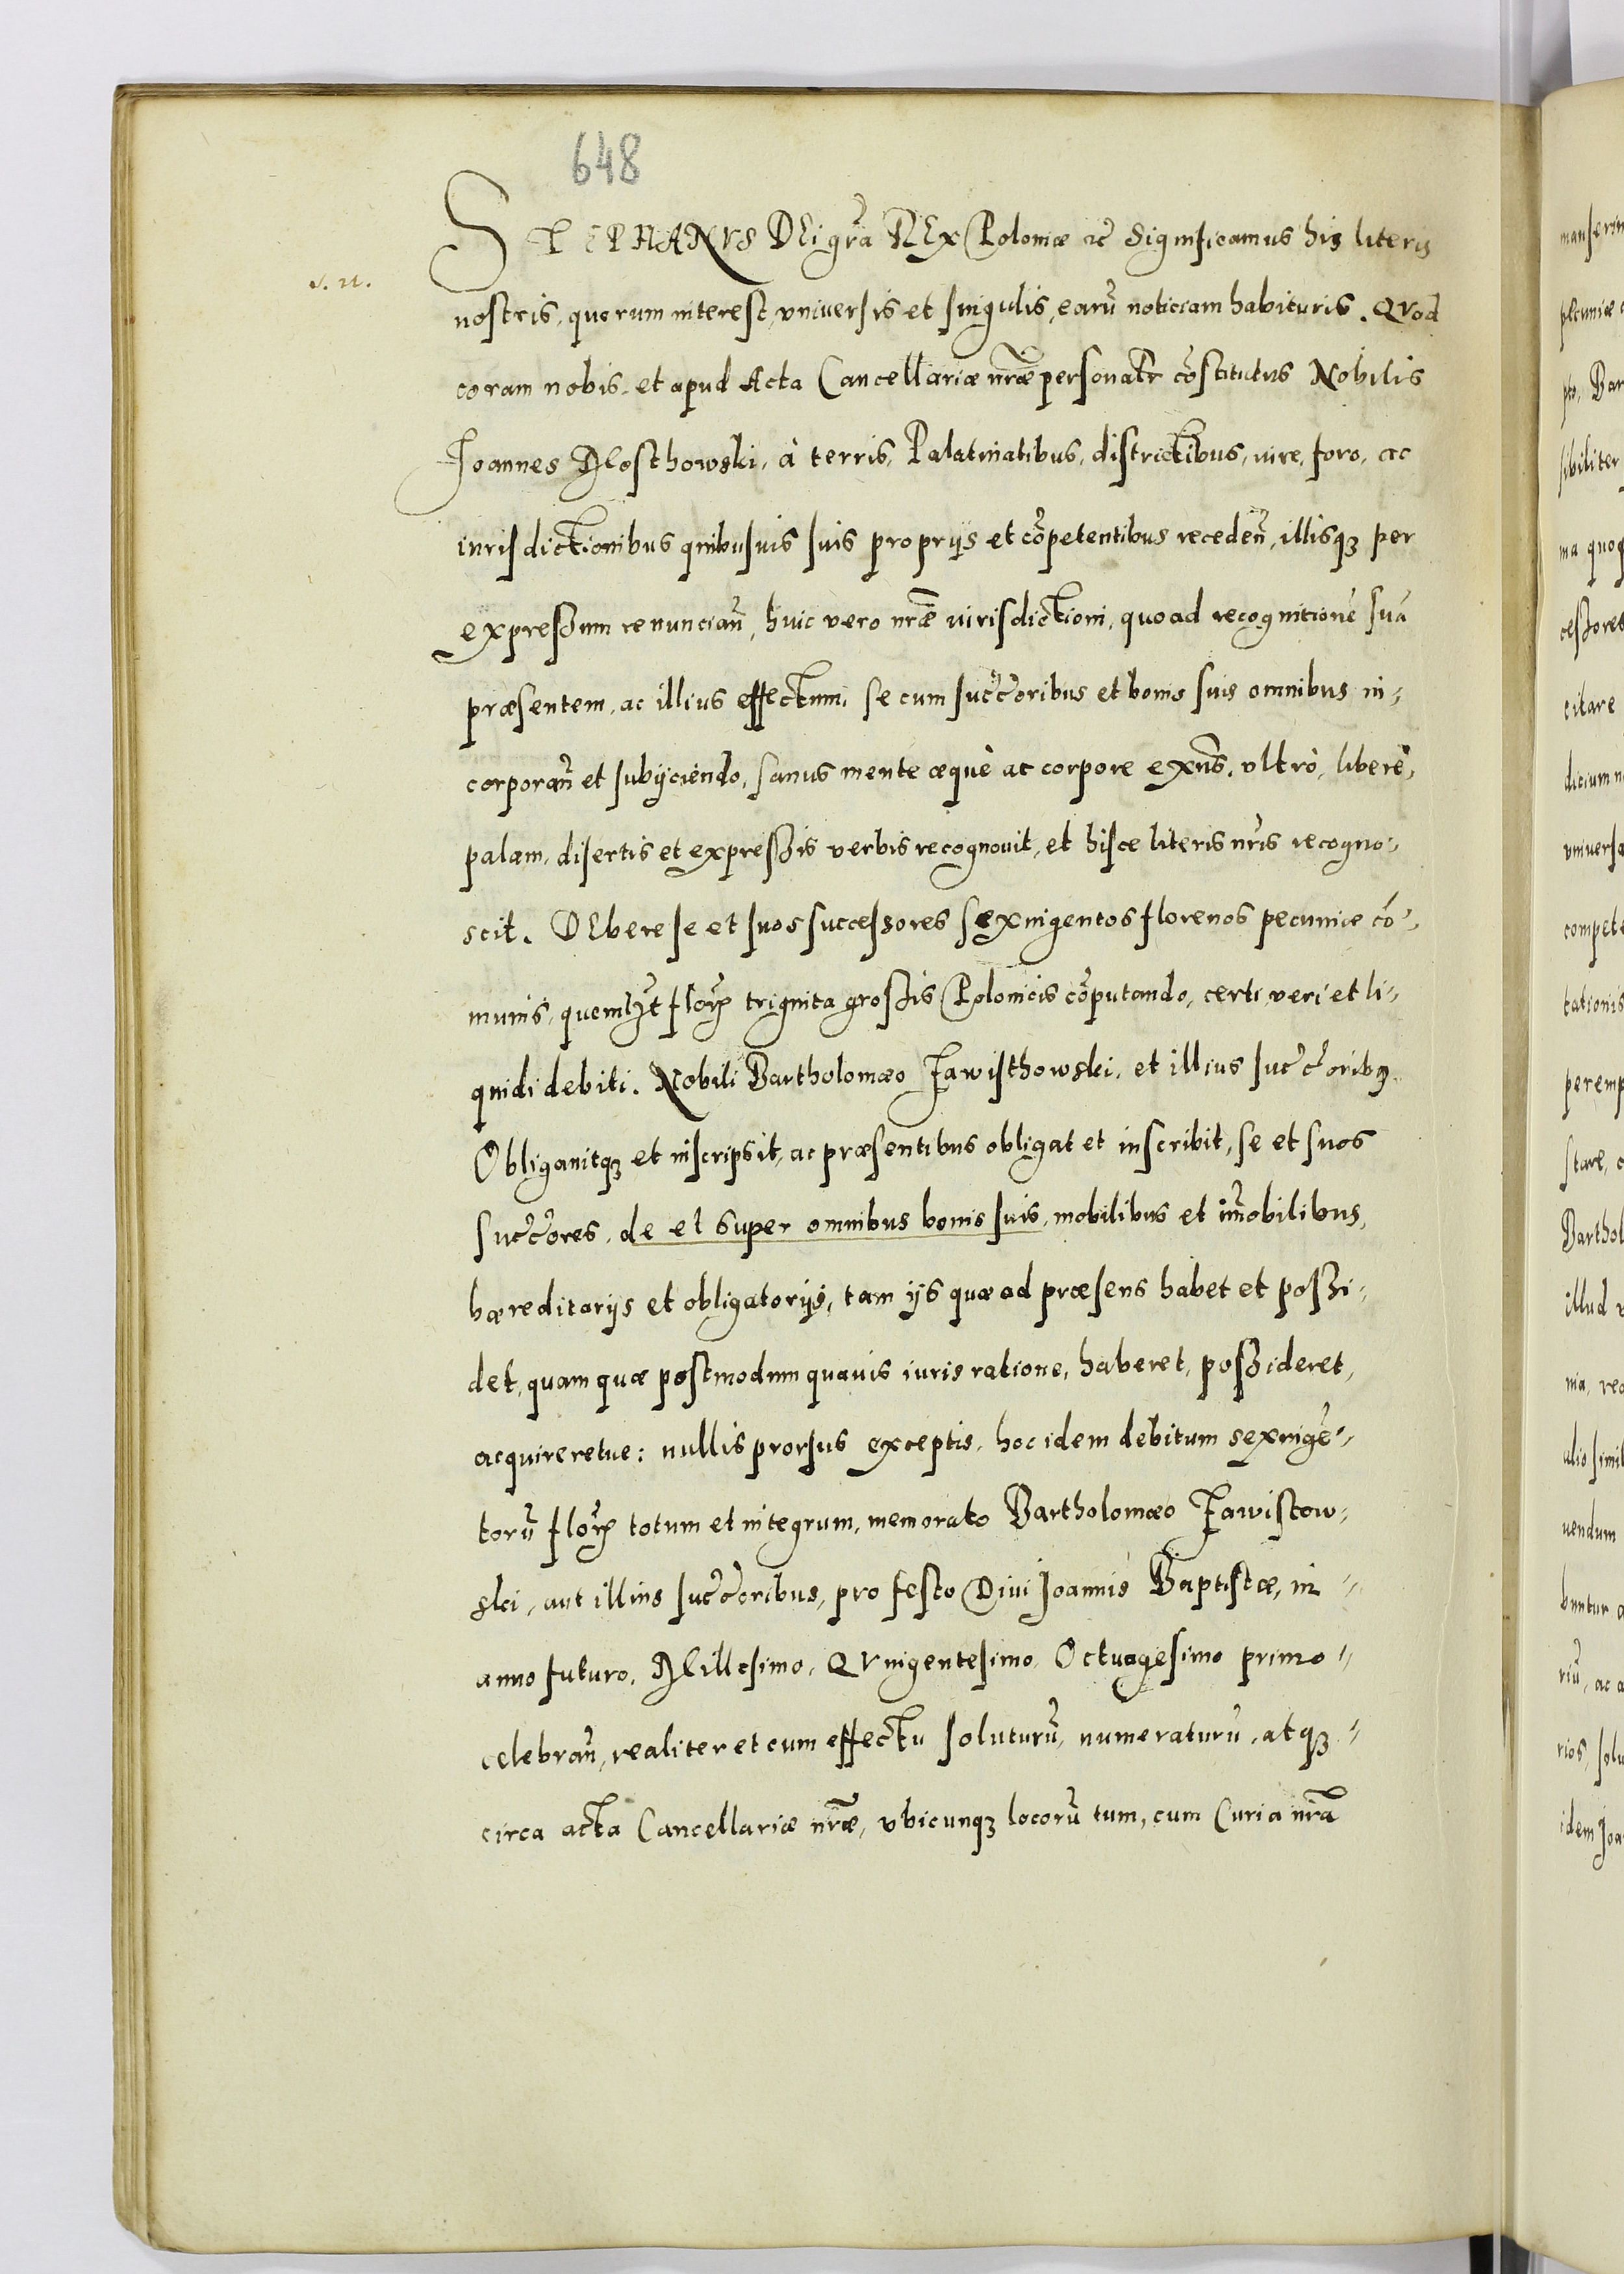 648
STEPHANVS DEi grã REx Poloniæ ac̃ Significamus his literis
nostris, quorum interest, vniuersis et singulis, earũ noticiam habituris. QVod
coram nobis, et apud Acta Cancellariæ nr̃æ personalr̃ cõstitutus Nobilis
Joannes Mosthowski, à terris, Palatinatibus, districtibus, iure, foro, ac
iurisdictionibus quibusuis suis proprijs et cõpetentibus recedeñ, illisqꝫ per
expressum renunciañ, huic vero nr̃æ iurisdictioni, quoad recognitionẽ suã
præsentem, ac illius effectum, se cum succ̃oribus et bonis suis omnibus in-
corporañ et subijciendo, sanus mente æquè ac corpore exñs, vltrò, liberè,
palam, disertis et expressis verbis recognouit, et hisce literis nr̃is recogno-
scit. DEbere se et suos successores sexingentos florenos pecuniæ cõ-
munis, quemlꝫt flor̃ triginta grossis Polonicis cõputando, certi, veri et li-
quidi debiti. Nobili Bartholomæo Jawisthowski, et illius succ̃oribꝫ.
Obligauitqꝫ et inscripsit, ac præsentibus obligat et inscribit, se et suos
succ̃ores, de et super omnibus bonis suis, mobilibus et im̃obilibus,
hæreditarijs et obligatorijs, tam ijs quæ ad præsens habet et possi-
det, quam quæ postmodum quauis iuris ratione, haberet, possideret,
acquireretue: nullis prorsus exceptis, hoc idem debitum sexingẽ-
torũ flor̃ totum et integrum, memorato Bartholomæo Jawistow-
ski, aut illius succ̃oribus, pro festo Diui Joannis Baptistæ, in
anno futuro, Millesimo, QVingentesimo, Octuagesimo primo
celebrañ, realiter et cum effectu soluturũ, numeraturũ, atqꝫ
circa acta Cancellariæ nr̃æ, vbicunqꝫ locorũ tum, cum Curia nr̃a